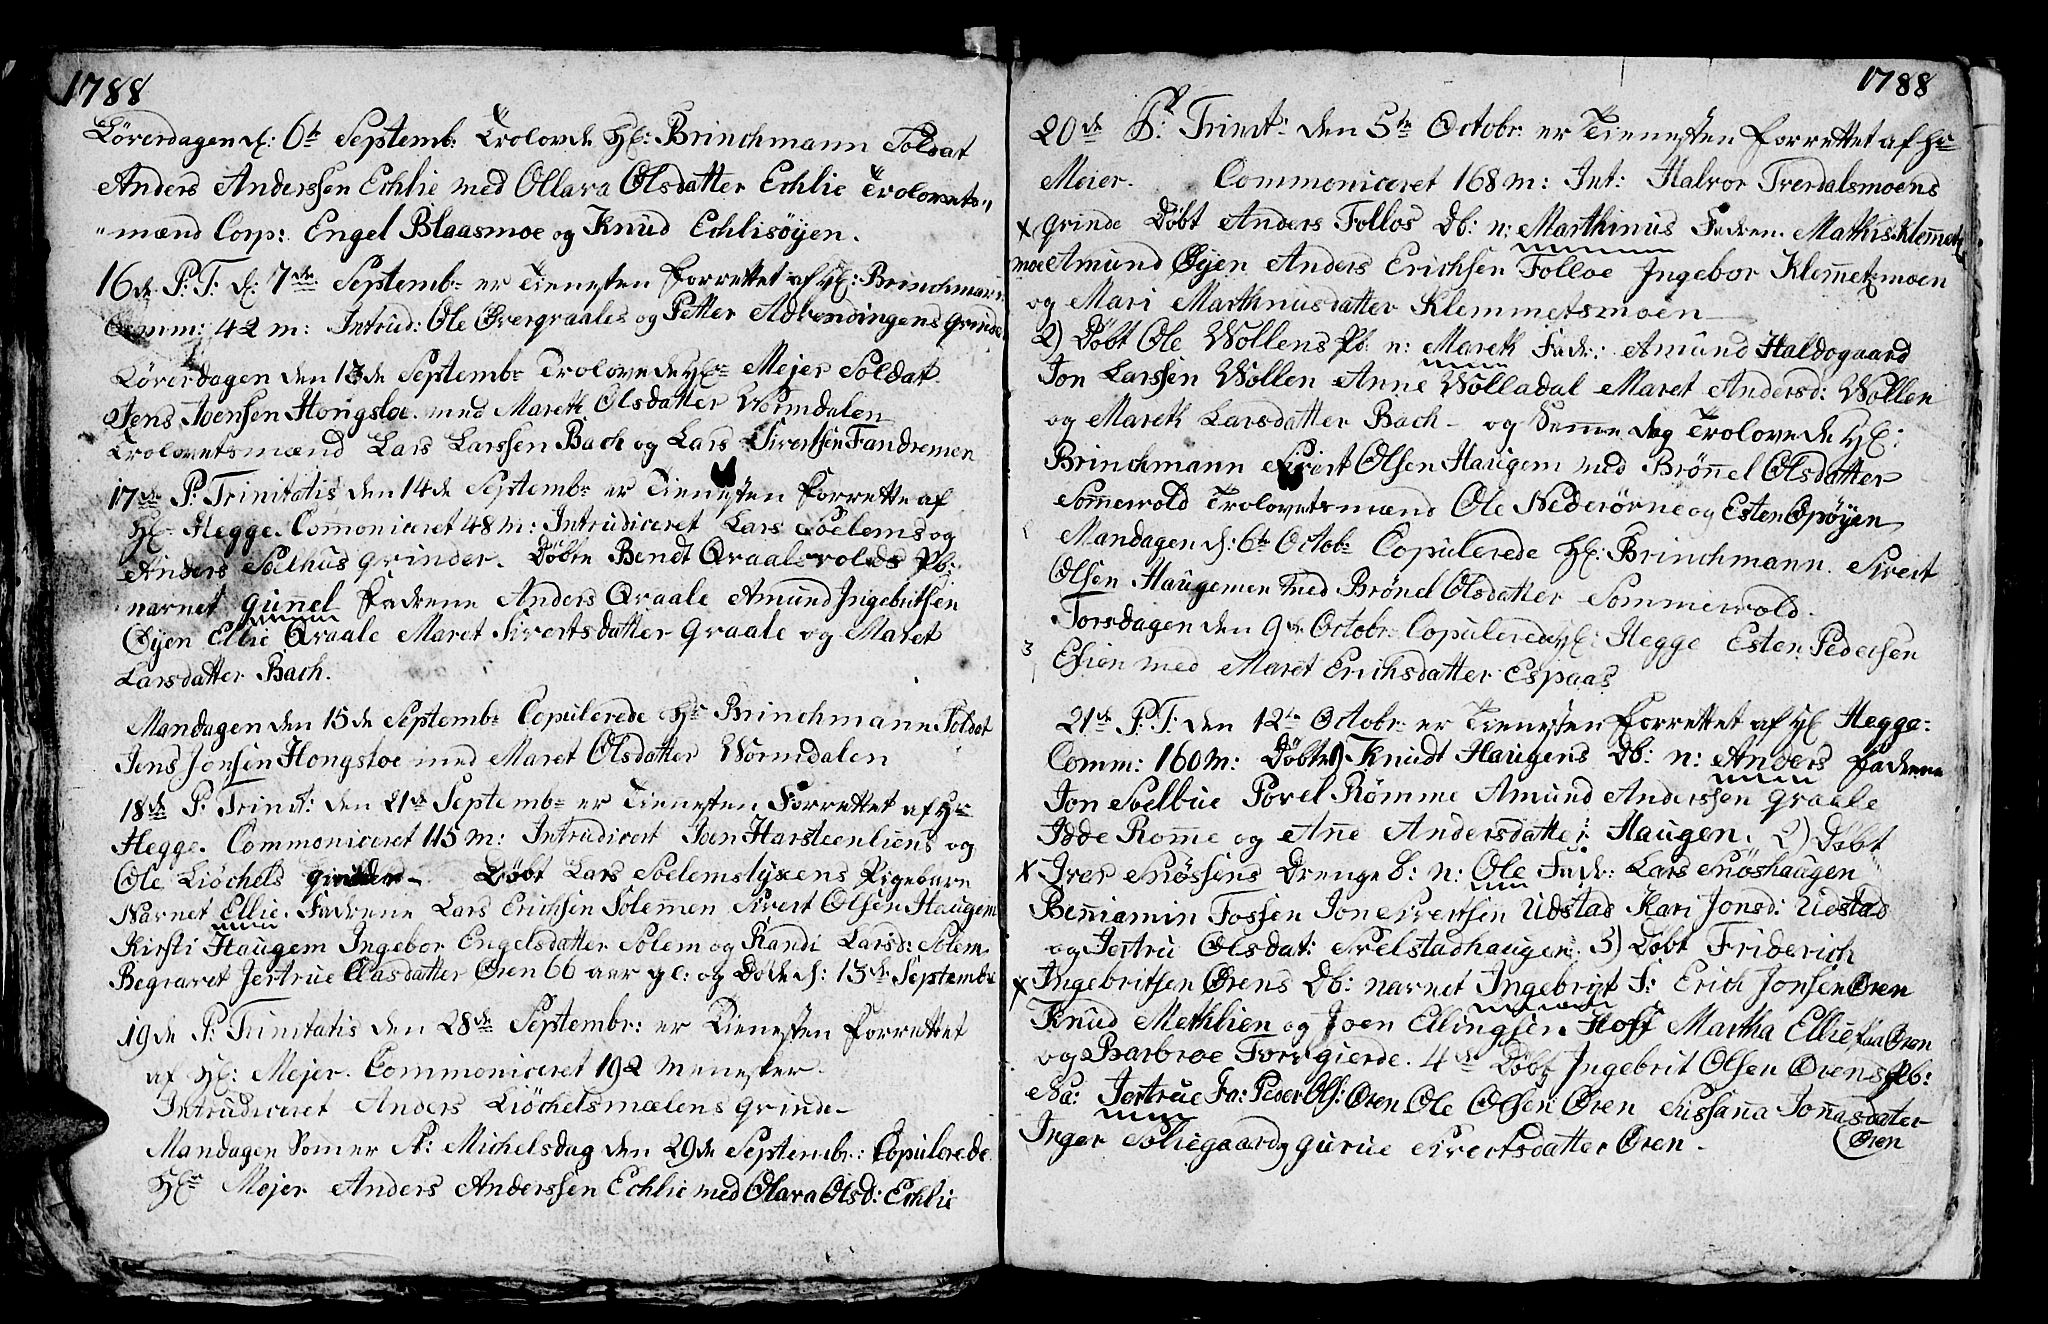 1788
Löverdagen d: 6te Septemb: Trolovde Hr: Brinchmann Soldat
Anders Anderssen Echlie med Ollara Olsdatter Echlie Trolovets-
mænd Corp: Engel Blaasmoe og Knud Echlisöyen.
16de P: T: d: 7de Septembr er Tienesten forrettet af Hr: Brinchmann
Comm: 42 m: Introd: Ole Overgraales og Petter Grinde
Löverdagen den 13de Septembr Trolovede Hr Mejer Soldat
Jens Joensen Hongsloe med Mareth Olsdatter Wormdalen
Trolovetsmænd Lars Larssen Bach og Lars Sivertsen Fandremen
17de P: Trinitatis den 14de Septembr er Tienesten forrette af
Hr Hegge. Comoniceret 48 m: Intrudiceret Lars Soelems og
Anders Soelhus grinder. Döbte Bendt Qraalsvolds Pb:
narnet Gunnel Fadrene Anders Qraale Amund Ingebritsen
Öyen Ellie Qraale Maret Sivertsdatter Graale og Maret
Larsdatter Bach.
Mandagen den 15de Septembr Copulerede Hr Brinchmann Soldat
Jens Jonsen Hongsloe med Maret Olsdatter Wormdalen
18de P: Trinit: den 21de Septembr er Tienesten Forrettet af Hr
Hegge. Commoniceret 115 m: Intrudicert Joen Harsteenliens og
Ole Liöchels grinder. Döbt Lars Soelemslyxens Pigebarn
Narnet Ellie. Fadrene Lars Erichsen Solemen Sivert Olsen Haugem
Kirsti Haugem Ingebor Engelsdatter Solem og Randi Larsd: Solem.
Begravet Jertrue Olasdatter Ören 66 aar gl: og döde d: 13de Septembr
19de P: Trinitatis den 28de Septembr: er Tienesten forrettet
af Hr: Mejer. Commoniceret 192 menester.
Intrudiceret Anders Liöchelsmælens grinde.
Mandagen Som er St: Michelsdag den 29de Septembr: Copulerede
Hr Mejer Anders Anderssen Echlie med Olara Olsd: Echlie
1788
20de P: Trinit: den 5te Octobr: er Tienesten forrettet af Hr
Meier. Commoniceret 168 m: Int: Halvor Trerdalsmoens
x grinde Döbt Anders Follos Db: n: Marthinus Fadren. Mathis Klemmetz
moe Amund Öyen Anders Erichsen Folloe Ingebor Klemmetzmoen
og Mari Marthnusdatter Klemmetsmoen
2) Döbt Ole Wollens Pb: n: Mareth Fadr: Amund Haldogaard
Jon Larssen Wollen Anne Wolladal Maret Andersd: Wollen
og Mareth Larsdatter Bach - og Samme dag Trolovede Hr:
Brinchmann Sivert Olsen Haugem med Brönnel Olsdatter
Sommerwold Trolovetsmænd Ole Nederörne og Esten Opöyen
Mandagen d: 6te Octobr Copulerede Hr: Brinchmann. Sivert
Olsen Haugemen med Brönel Olsdatter Sommerwold.
Torsdagen den 9de Octobr: Copulerede Hr: Hegge Esten Pedersen
3 med Maret Erichsdatter Espaas
21de P: T: den 12te Octobr: er Tienesten forrettet af Hr Hegge:
Comm: 160 m: Döbte 1) Knudt Haugens Db: n: Anders Fadrene
Jon Soelbue Povel Römme Amund Anderssen graale
Idde Rømme og Ane Andersdatter Haugen. 2) Döbt
x Iver Snössens Drenge b: n: Ole Fadr: Lars Snöshaugen
Benniamin Fossen Jon Sivertsen Udstad Kari Jonsd: Udstad
og Jertru Olsdat: Svelstadhaugen. 3) Döbt Friderich
x Ingebritsen Örens Db: narnet Ingebrigt F: Erich Jonsen Ören
Knud Methlien og Joen Ellingsen Hoff Martha Ellie paa Ören
og Barbroe Torsgierde. 4de Döbt Ingebrit Olsen Örens Pb:
Na: Jertrue Fa: Peder Ols: Ören Ole Olsen Ören Sussana Jonasdater
Ören
Inger Soliegaard og Gurue Sivertsdatter Ören.